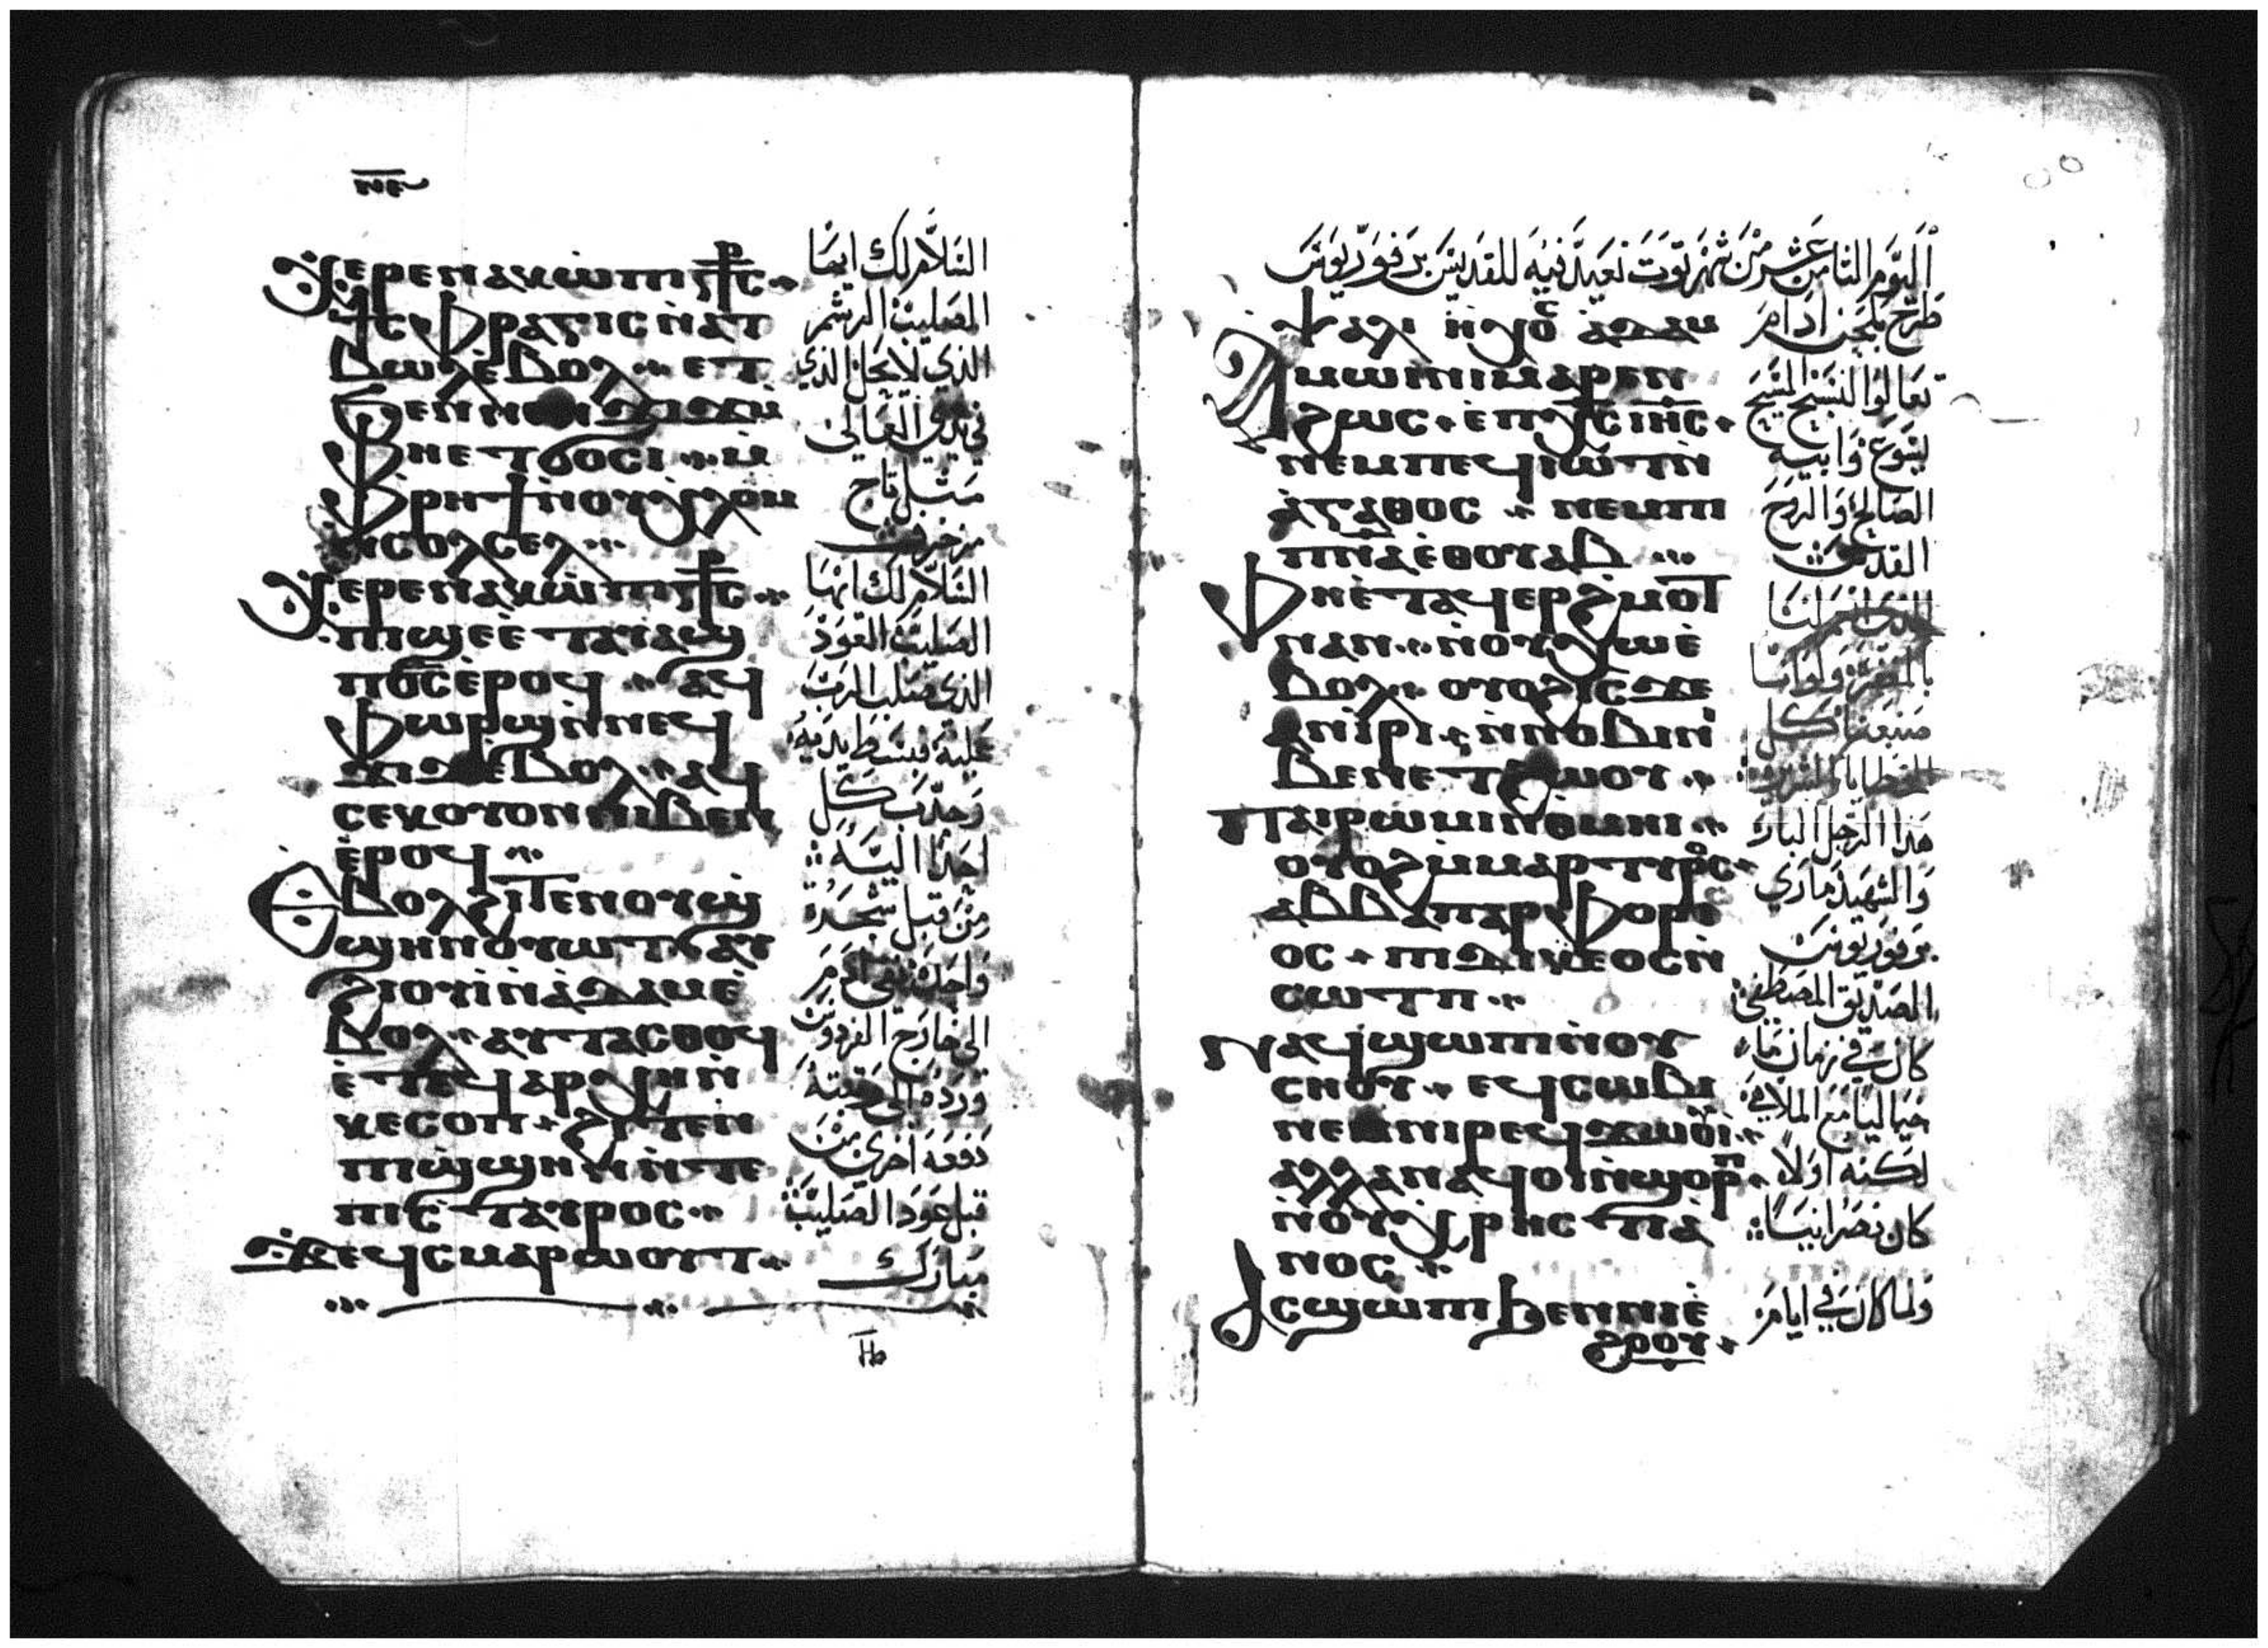 ⲛⲉ
ⲭⲉⲣⲉ ⲛⲁⲕ ⲱ ⲡⲓⲥ⳨ⲥ
ϯⲥⲫⲣⲁⲅⲓⲥ ⲛ̀ⲁⲧ
ⲃⲱⲗ ⲉ̀ⲃⲟⲗ ⲉⲧ
ϧⲉⲛ
ⲫⲏⲉⲧϭⲟⲥⲓ ⲙ̀
ⲫⲣⲏϯ ⲛ̀ⲟⲩⲭⲗⲟⲙ
ⲛⲥⲟⲗⲥⲉⲗ
ⲭⲉⲣⲉ ⲛⲁⲕ ⲱ ⲡⲓⲥ⳨ⲥ
ⲡⲓϣⲉ ⲉ̀ⲧⲁⲩⲁϣ
ⲡϭⲥ ⲉ̀ⲣⲟϥ ⲁϥ
ⲫⲱⲣϣ ⲛ̀ⲛⲉϥ
ϫⲓϫ ⲉ̀ⲃⲟⲗ ⲁϥ
ⲥⲉⲕ ⲟⲩⲟⲛ ⲛⲓⲃⲉⲛ
ⲉ̀ⲣⲟϥ
ⲉⲃⲟⲗ ϩⲓⲧⲉⲛ ⲟⲩϣ
ϣⲏⲛ ⲛ̀ⲟⲩⲱⲧ ⲁⲩ
ϩⲓⲟⲩⲓ̀ ⲛ̀ⲁ̀ⲇⲁⲙ ⲉ̀
ⲃⲟⲗ ⲁⲩⲧⲁⲥⲑⲟϥ
ⲉ̀ⲧⲉϥⲁⲣⲭⲏ ⲛ̀
ⲕⲉⲥⲟⲡ ϩⲓⲧⲉⲛ
ⲡⲓϣϣⲏⲛ ⲛ̀ⲧⲉ
ⲡⲓⲥⲧⲁⲩⲣⲟⲥ
ϫⲉ ϥⲥⲙⲁⲣⲱⲟⲩⲧ
السَّلام لك ايها
الصليب الرشم
الذي لا يحل الذي
في يدي العالى
مثل تاج
مزخرف
السَّلام لك ايها
الصليب العود
الذي صلب الرب
عليه فبسط يديه
وجذب كل
احد اليه
من قبل شجرة
واحدة نفى ادم
الى خارج الفردوس
ورده الى رتبته
دفعة اخرى من
قبل عود الصليب
مبارك
اليوم الثامن عشر من شهر توت نعيد فيه للقديس برفوريوس
ⲯⲁⲗⲓ ⲏⲭⲟⲥ ⲁⲇⲁⲙ
ⲁⲙⲱⲓⲛⲓ ⲙⲁⲣⲉⲛ
ϩⲱⲥ ⲉ̀ⲡⲭⲥ ⲓⲏⲥ
ⲛⲉⲙ ⲡⲉϥⲓⲱⲧ ⲛ̀
ⲁ̀ⲅⲁⲑⲟⲥ ⲛⲉⲙ ⲡⲓ
ⲡⲛⲁ ⲉ̀ⲑⲟⲩⲁⲃ
ⲫⲏⲉ̀ⲧⲁϥⲉⲣϩⲙⲟⲧ
ⲛⲁⲛ ⲛ̀ⲟⲩⲭⲱ ⲉ̀
ⲃⲟⲗ ⲟⲩⲟϩ ⲓⲥϫⲉ
ⲁⲛⲓ̀ⲣⲓ ⲛ̀ⲛⲟⲃⲓ ⲛⲓ
ⲃⲉⲛ ⲉⲧϩⲱⲟⲩ
ⲡⲁⲓⲣⲱⲙⲓ ⲛ̀ⲑⲙⲏⲓ
ⲟⲩⲟϩ ⲙ̀ⲙⲁⲣⲧⲩⲣⲟⲥ
ⲁⲃⲃⲁ ⲡⲁⲣⲫⲟⲣⲓ
ⲟⲥ ⲡⲓⲇⲓⲕⲉⲟⲥ ⲛ̀
ⲥⲱⲧⲡ
ⲛⲁϥϣⲱⲡ ⲛ̀ⲟⲩ
ⲥⲏⲟⲩ ⲉϥⲥⲱⲃⲓ
ⲛⲉⲙ ⲛⲓⲣⲉϥϫⲱⲟⲩⲓ
ⲁⲗⲗⲁ ⲛⲁϥⲟⲓ ⲛ̀ϣⲟⲣⲡ
ⲛ̀ⲟⲩⲭⲣⲏⲥⲧⲓⲁ
ⲛⲟⲥ
ⲁⲥϣⲱⲡⲓ ϧⲉⲛ ⲛⲓⲉ̀
ϩⲟⲟⲩ
طرح بلحن ادام
تعالوا لنسبح المسيح
يسوع وابيه
الصالح والروح
القدس
بالمغفرة ولو اننا
صنعنا كل
الخطايا الشريرة
هذا الرجل البار
والشهيد ماري
برفوريوس
الصديق المصطفى
كان في زمان ما
خياليا مع الملاهي
لكنه اولا
كان نصرانيا
ولما كان في ايام